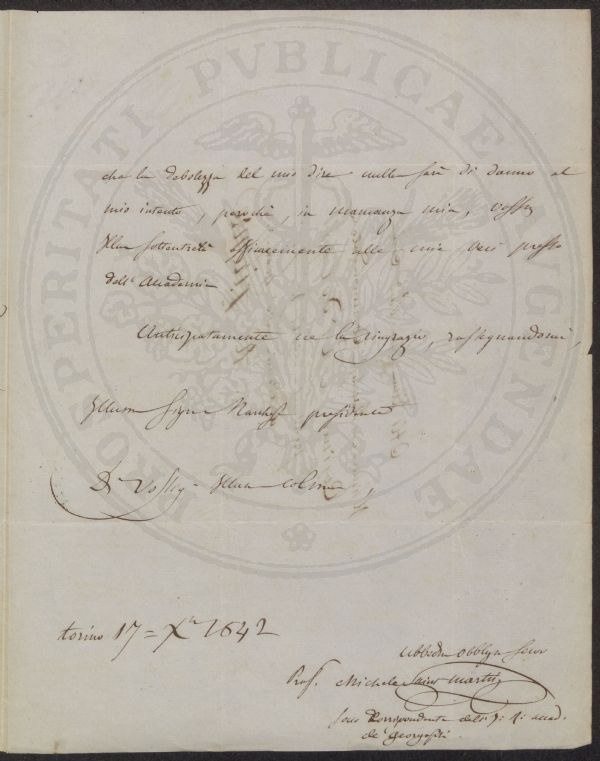 PROSPERITATI PVBLICAE AVGENDAE
che la debolezza del mio dire nulla farà di danno al
mio intento, perochè, in mancanza mia, vossa
Illma sottentrerà efficacemente alle mie veci presso
dell' Accademia
Anticipatamente ne la ringrazio, rassegnandomi,
Illmo Signr March presidente
Di Vossa Illma Colma
torino 17 = Xbre 1842
Obblmo Servo
Prof. Michele Saint Martin
Socio Corrispondente della I. R. accad.
de' georgofili